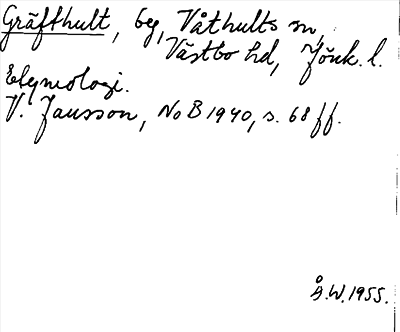 Gräfthult, by, Våthults sn,
Västbo hd, Jönk. l.
Etymologi.
V. Jansson, NoB 1940, s. 68 ff.
Å.W. 1955.